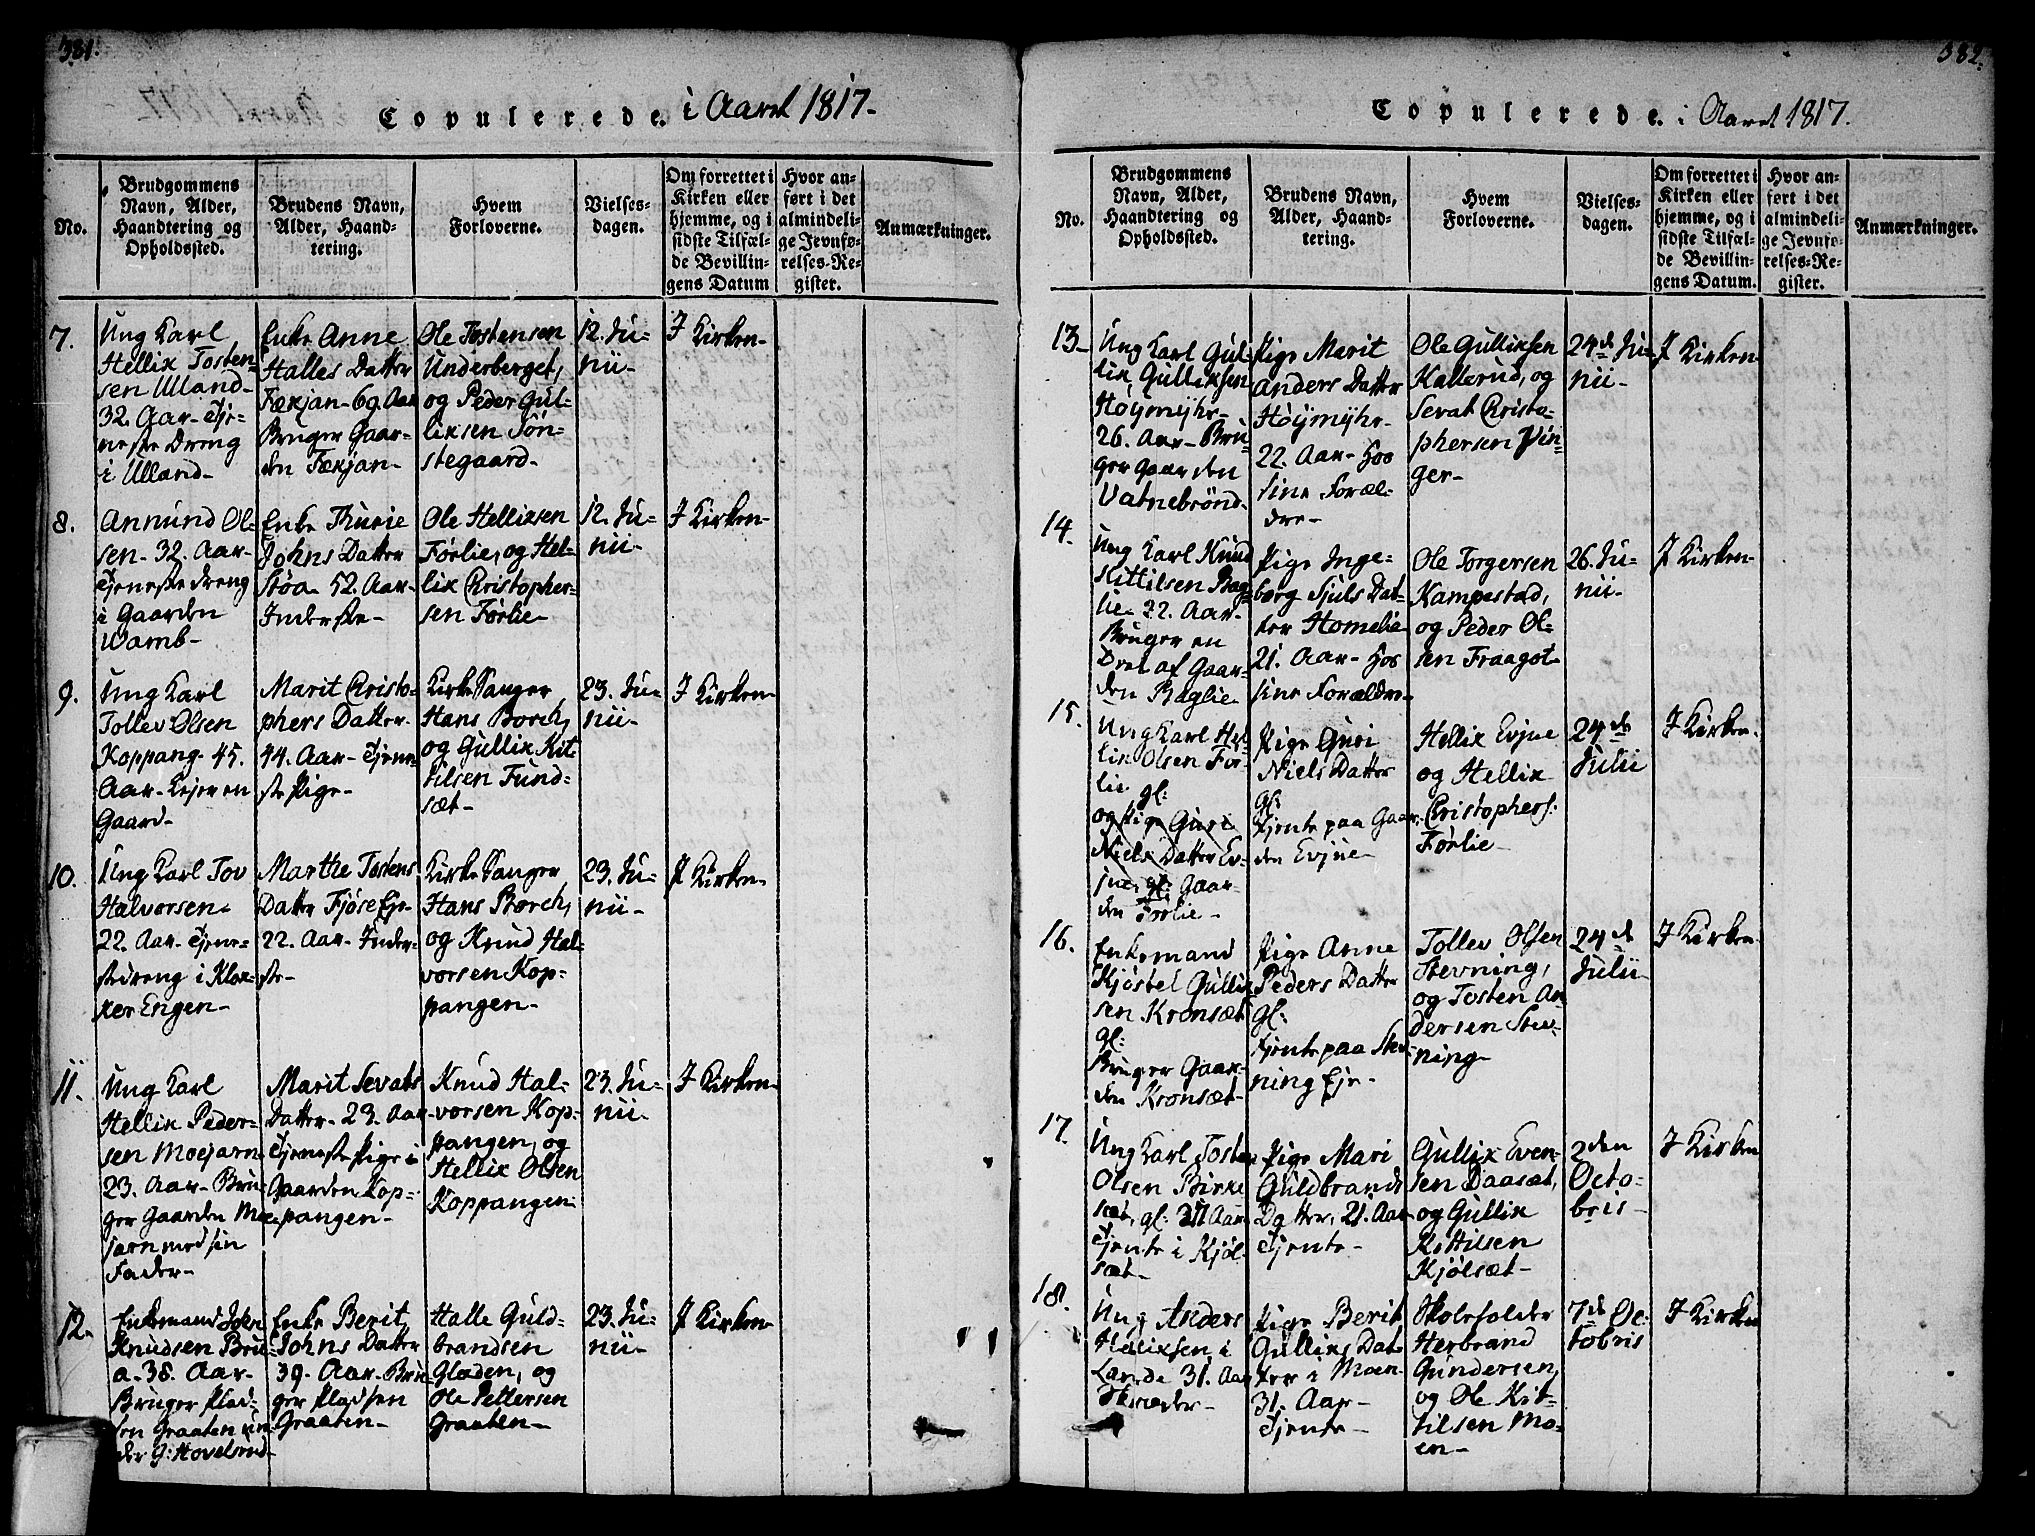 381.
Copulerede. i Aaret 1817-
No.
Brudgommens
Navn, Alder,
Haandtering og
Opholdssted.
Brudens Navn,
Alder, Haand-
tering.
Hvem
Forloverne.
Vielses-
dagen.
Om forrettet i
Kirken eller
hjemme, og i
sidste Tilfæl-
de Bevillin-
gens Datum
Hvor an-
ført i det
almindeli-
ge Jevnfø-
relses-Re-
gister.
Anmærkninger.
7.
Ung Karl
Hellix Tosten-
sen Ulland-
32. Aar- Tje-
neste Dreng
i Ulland-
Enke Anne
Halles Datter
Fæxjan- 69. Aar
Bruger Gaar-
den Fæxjan-
Ole Tostensen
Underberget,
og Peder Gul-
lixsen Søn-
stegaard-
12. Ju-
nii-
I Kirken-
8.
Annund Ol-
sen- 32. Aar-
Tjeneste dreng
i Gaarden
Wamb-
Enke Thurie
Johns Datter
Støa- 52. Aar-
Inderste-
Ole Hellixsen
Førlie, og Hel-
lix Christopher-
sen Førlie-
12. Ju-
nii-
I Kirken-
9.
Ung Karl
Tollev Olsen
Koppang- 45.
Aar- Lejer en
Gaard-
Marit Christo-
phers Datter-
44. Aar- Tjene-
ste Pige-
Kirke Sanger
Hans Borch,
og Gullix Kit-
tilsen Fund-
sæt-
23. Ju-
nii-
I Kirken-
10.
Ung Karl Tov
Halvorsen-
22. Aar- Tjene-
stedreng i Klok-
ker Engen-
Marthe Tostens
Datter Fjøse Eje-
22. Aar- Inder-
ste-
Kirke Sanger
Hans Borch,
og Knud Hal-
vorsen Kop-
pangen-
23. Ju-
nii-
I Kirken-
11.
Ung Karl
Hellix Peder-
sen Moejarn
23. Aar- Bru-
ger Gaarden Moe-
jarn med sin
Fader-
Marit Sevats
Datter- 23. Aar-
Tjeneste Pige i
Gaarden Kop-
pangen-
Knud Hal-
vorsen Kop-
pangen, og
Hellix Olsen
Koppangen-
23. Ju-
nii-
I Kirken-
12.
Enkemand John
Knudsen Bru-
a- 38. Aar-
Bruger Plad-
sen Graaten un-
der G: Hovelsrud-
Enke Berit
Johns Datter
39. Aar- Bru-
ger Pladsen
Graaten-
Halle Guld-
brandsen
Gladen, og
Ole Pettersen
Graaten-
23. Ju-
nii-
I Kirken-
382.
Copulerede. i Aaret 1817.
No.
Brudgommens
Navn, Alder,
Haandtering og
Opholdssted.
Brudens Navn,
Alder, Haand-
tering.
Hvem
Forloverne.
Vielses-
dagen.
Om forrettet i
Kirken eller
hjemme, og i
sidste Tilfæl-
de Bevillin-
gens Datum.
Hvor an-
ført i det
almindeli-
ge Jevnfø-
relses-Re-
gister.
Anmærkninger.
13-
Ung Karl Gul-
lix Gullixsen
Høymyhr-
26. Aar- Bru-
ger Gaarden
Vatnebrønd-
Pige Marit
Anders Datter
Høymyhr-
22. Aar- Hos
sine Foræl-
dre-
Ole Gullixsen
Kallerud, og
Sevat Christo-
phersen Vin-
ger-
24de Ju-
nii-
I Kirken-
14.
Ung Karl Knud
Kittilsen Bag-
lie- 32. Aar-
Bruger en
Deel af Gaar-
den Baglie-
Pige Inge-
borg Sjuls Dat-
ter Homelie-
21. Aar- Hos
sine Forældre-
Ole Torgersen
Kampestad,
og Peder Ol-
sen Fraagot-
26. Ju-
nii-
I Kirken-
15.
Ung Karl Hel-
lix Olsen Før-
lie gl:
og Pige Guri
Niels Datter Ev-
jue, gl: Gaar-
den Førlie-
Pige Guri
Niels Datter
gl:
Tjente paa Gaar-
den Evjue-
Hellix Evjue
og Hellix
Christophers:
Førlie-
24de
Julii
I Kirken-
16.
Enkemand
Kjøstel Gullix-
sen Kronsæt
gl:
Bruger Gaar-
den Kronsæt-
Pige Anne
Peders Datter
gl:
Tjente paa Stev-
ning Eje-
Tollev Olsen
Stevning,
og Tosten An-
dersen Stev-
ning-
24de
Julii
I Kirken-
17.
Ung Karl Tosten
Olsen Birke
sæt, gl: 37 Aar
Tjente i Kjøl-
sæt-
Pige Mari
Guldbrands
Datter, 21. Aar
Tjente-
Gullix Even-
sen Daasæt,
og Gullix
Kittilsen
Kjølsæt-
2den
Octo-
bris-
I Kirken
18.
Ung Anders
Hellixsen i
Larsde 31. Aar
Pige Berit
Gullixs Dat-
ter i Moen-
31. Aar-
Tjente-
Skoleholder
Herbrand
Gundersen,
og Ole Kit-
tilsen Mo-
en-
7de Oc-
tobris
I Kirken